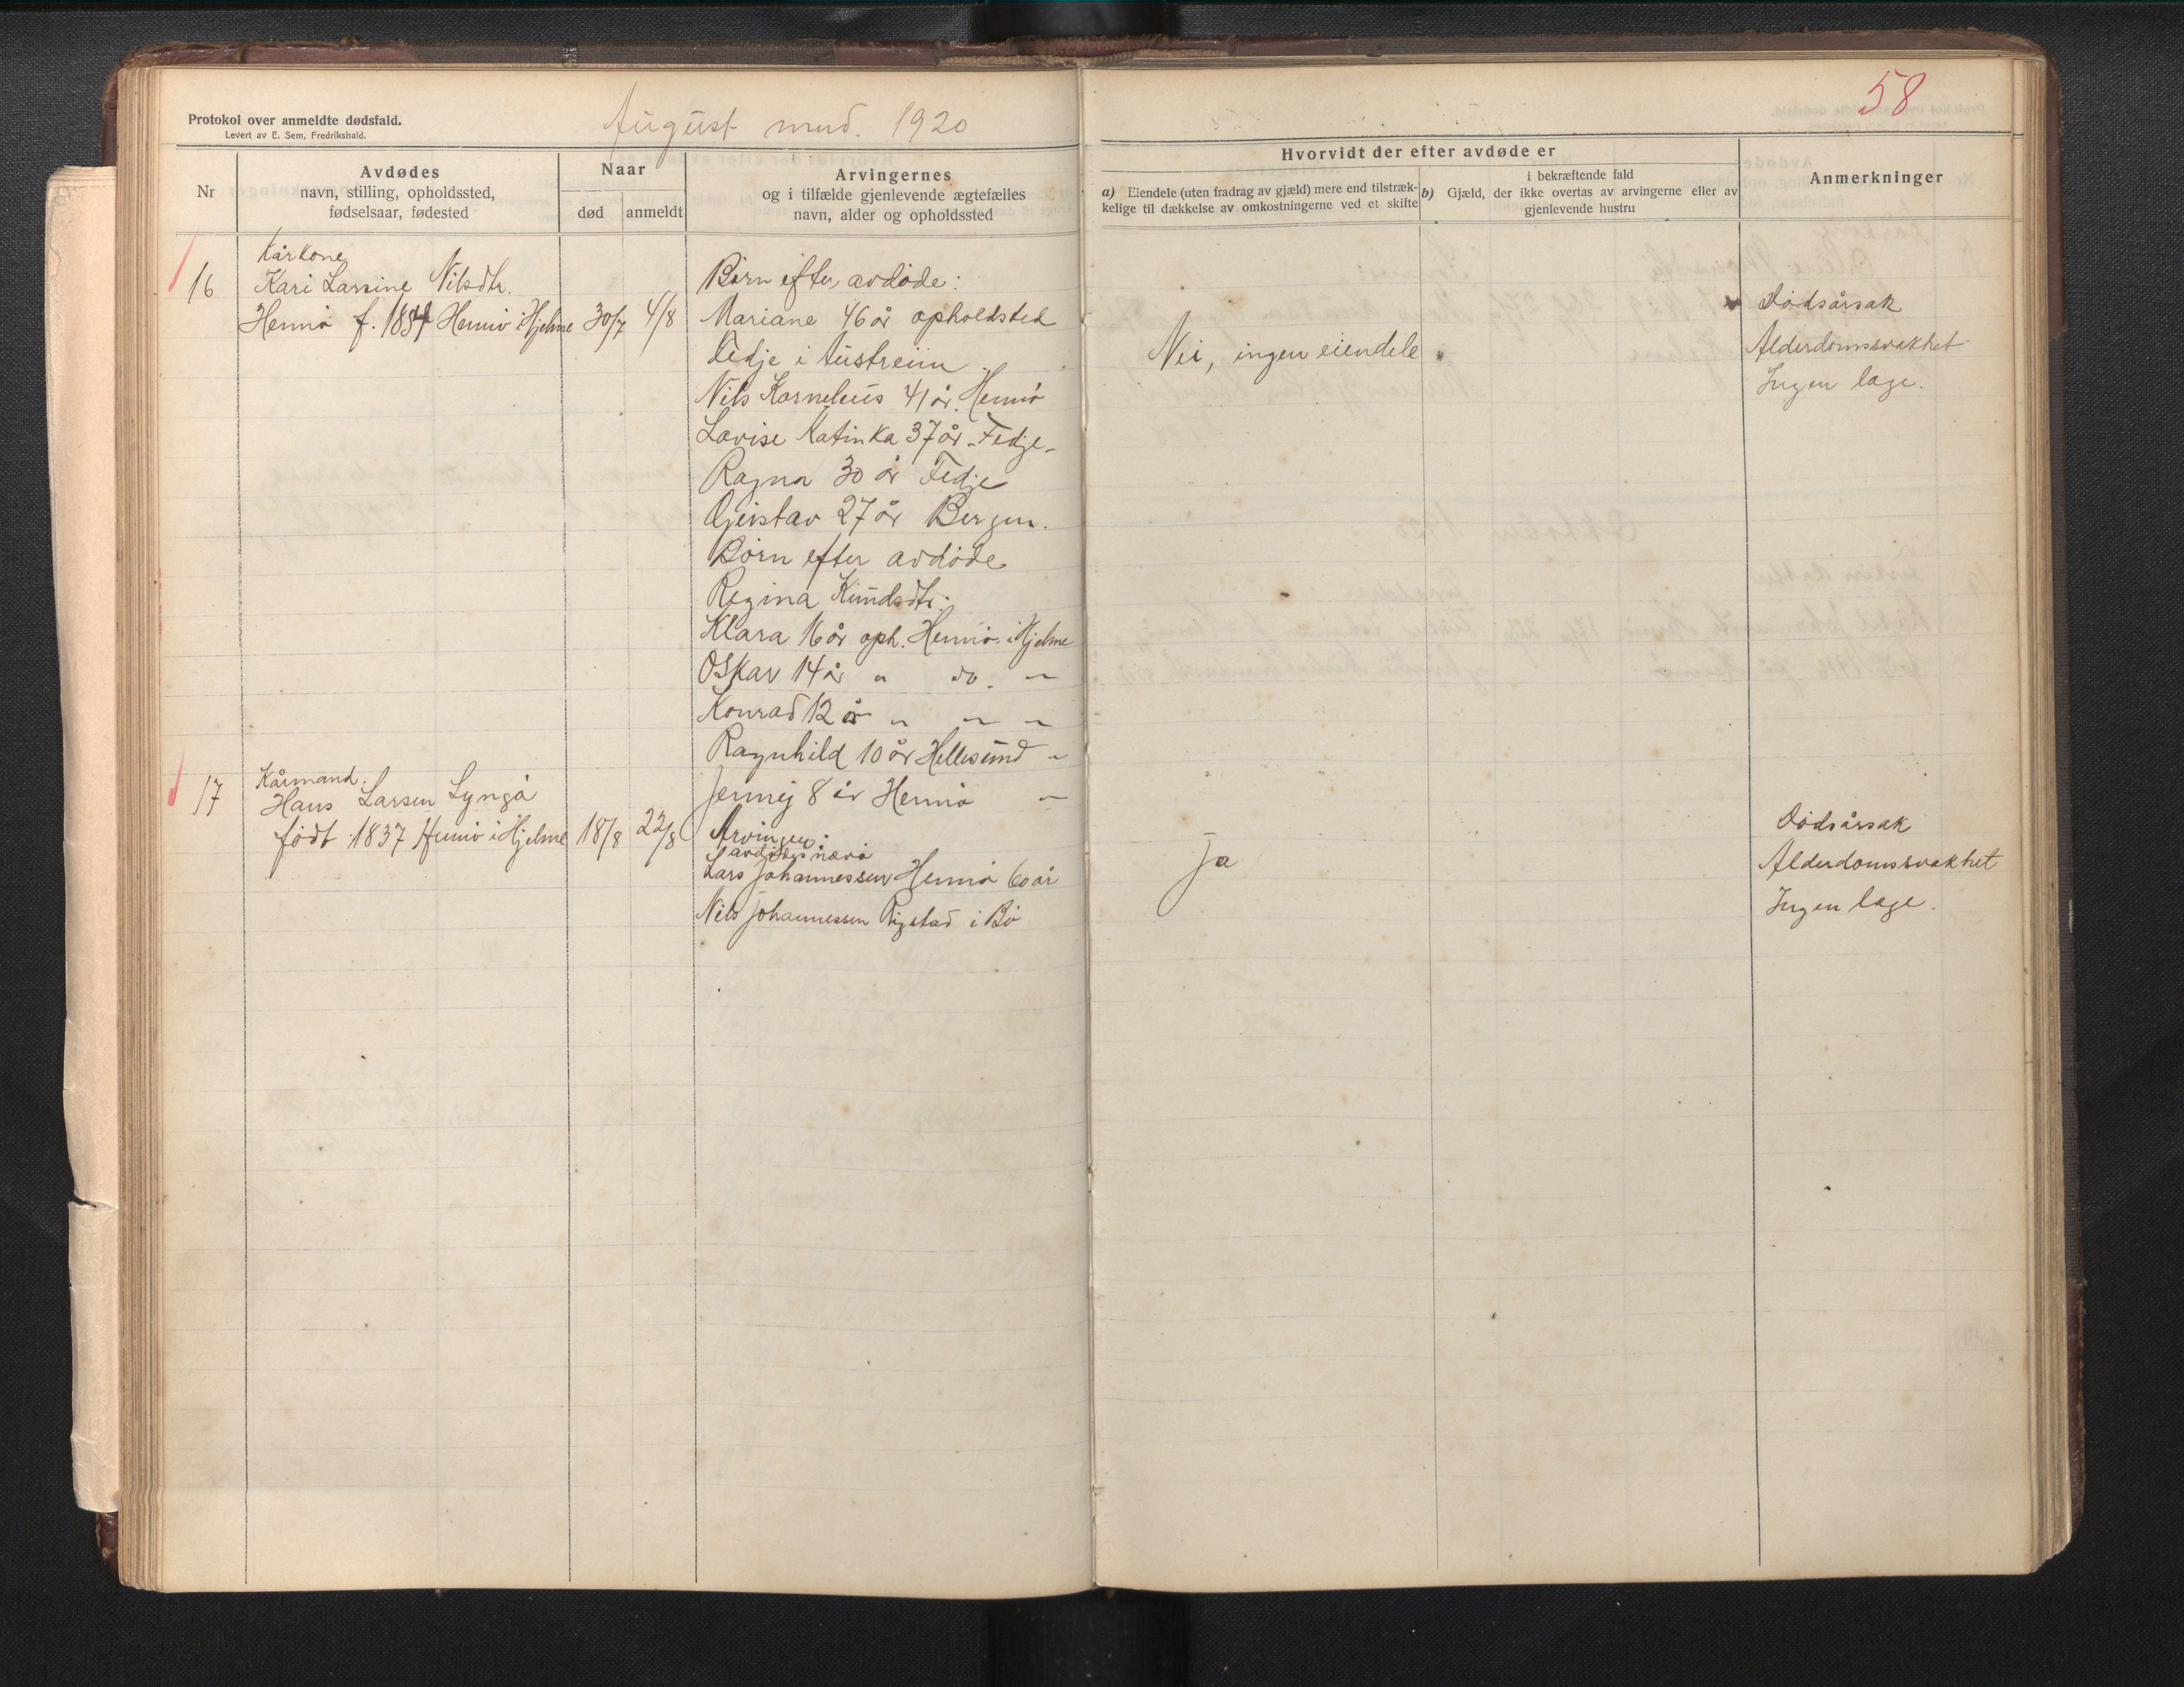 Protokol over anmeldte dødsfald.
Levert av E. Sem, Fredrikshald.
August mnd. 1920
58
Nr
Avdødes
navn, stilling, opholdssted,
fødselsaar, fødested
Naar
død
anmeldt
Arvingernes
og i tilfælde gjenlevende ægtefælles
navn, alder og opholdssted
Hvorvidt der efter avdøde er
a) Eiendele (uten fradrag av gjæld) mere end tilstræk-
kelige til dækkelse av omkostningerne ved et skifte
i bekræftende fald
b) Gjæld, der ikke overtas av arvingerne eller av
gjenlevende hustru
Anmerkninger
16
Kårkone
Kari Larsine Nilsdtr.
Hennø f. 1854 Hennø i Hjelme
30/7
4/8
Børn efter avdøde:
Mariane 46 år opholdsted
Fedje i Austreim
Nils Kornelius 41 år. Hennø
Lovise Katinka 37 år - Fedje -
Ragna 30 år Fedje
Gustav 27 år Bergen.
Børn efter avdøde
Regina Knudsdtr.
Klara 16 år oph. Hennø i Hjelme
Oskar 14 år " do. "
Konrad 12 år " " "
Ragnhild 10 år Hellesund "
Jenny 8 år Hennø "
Nei, ingen eiendele
Dødsårsak
Alderdomssvakhet
Ingen læge.
17
Kårmand.
Hans Larsen Lyngø
født 1837 Hennø i Hjelme
18/8
22/8
Arvinger
Lars Johannessen Hennø 60 år
Nils Johannessen Rigstad i Bø
Ja
Dødsårsak
Alderdomssvakhet
Ingen læge.